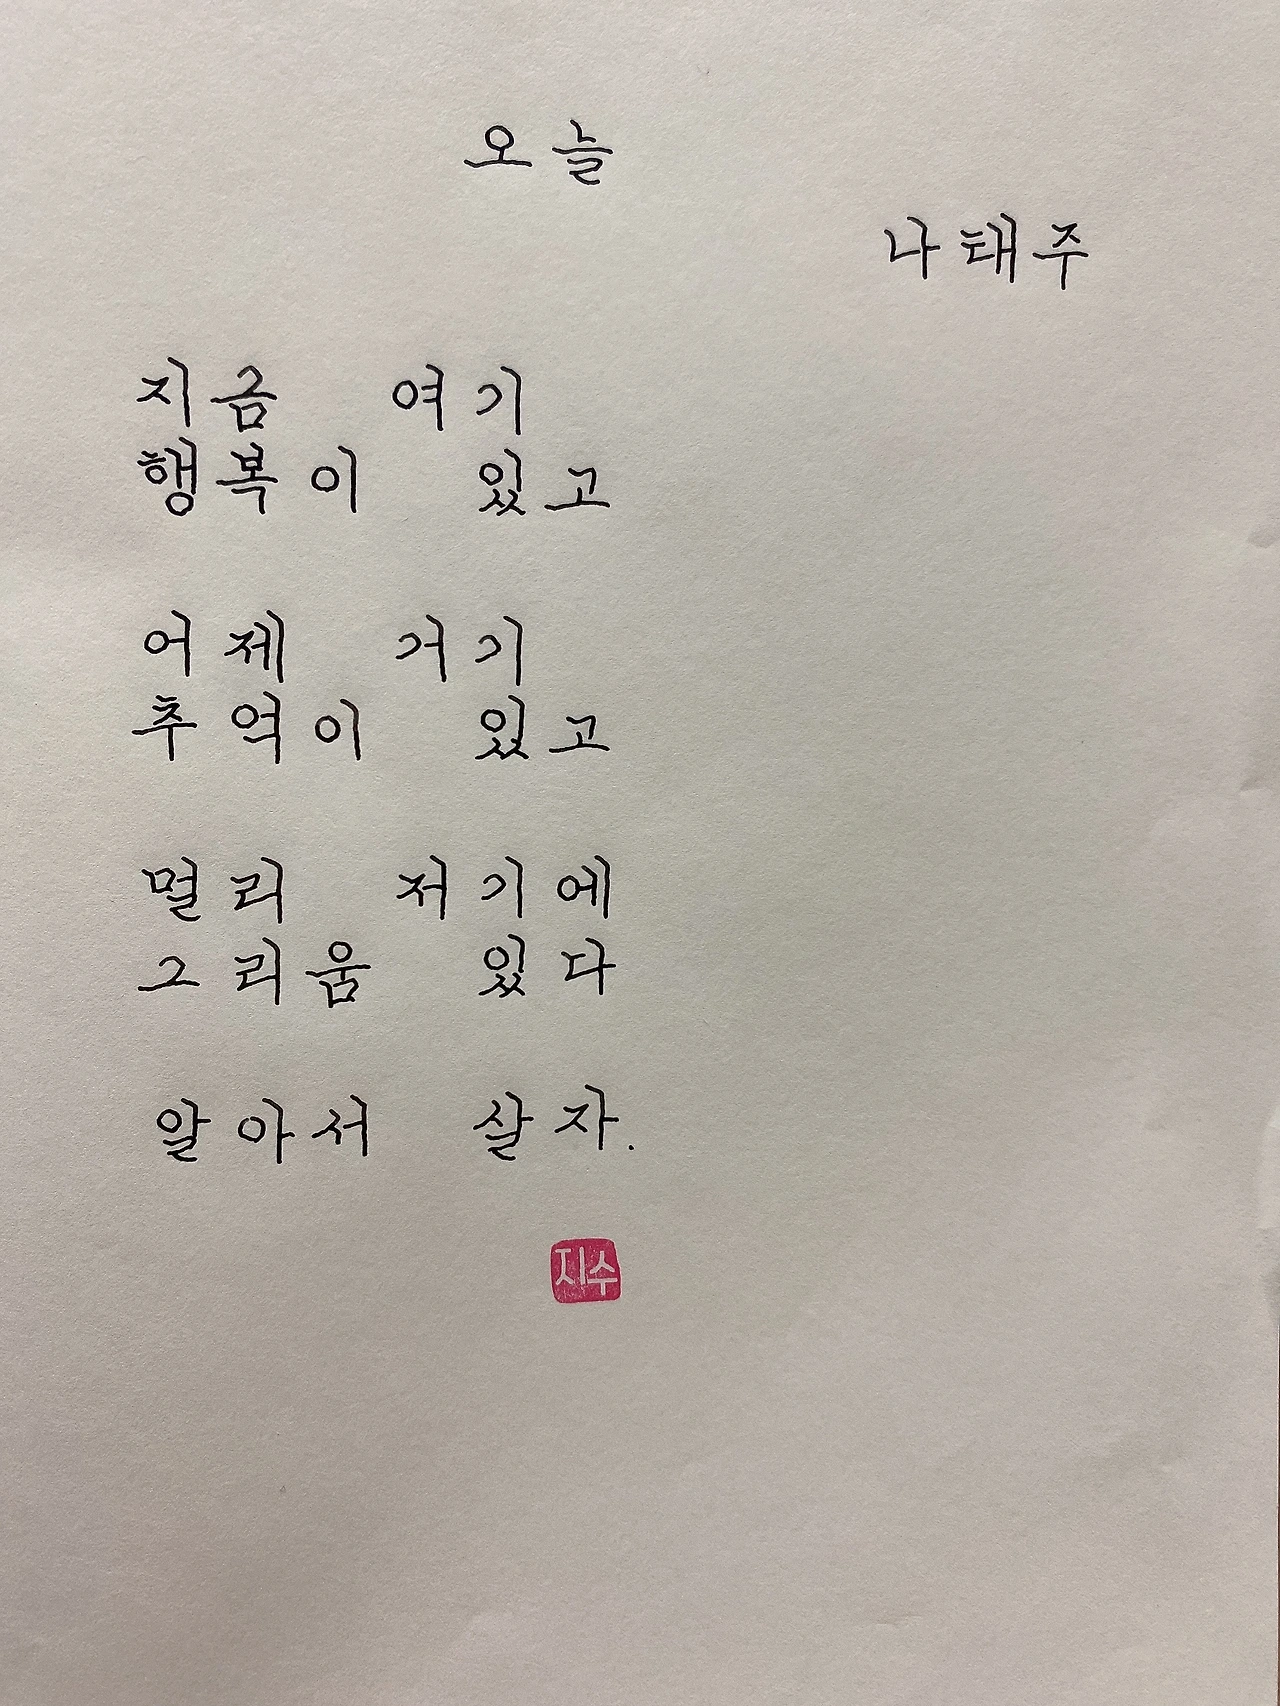 오늘
나태주
지금 여기
행복이 있고
어제 거기
추억이 있고
멀리 저기에
그리움 있다
알아서 살자.
지수